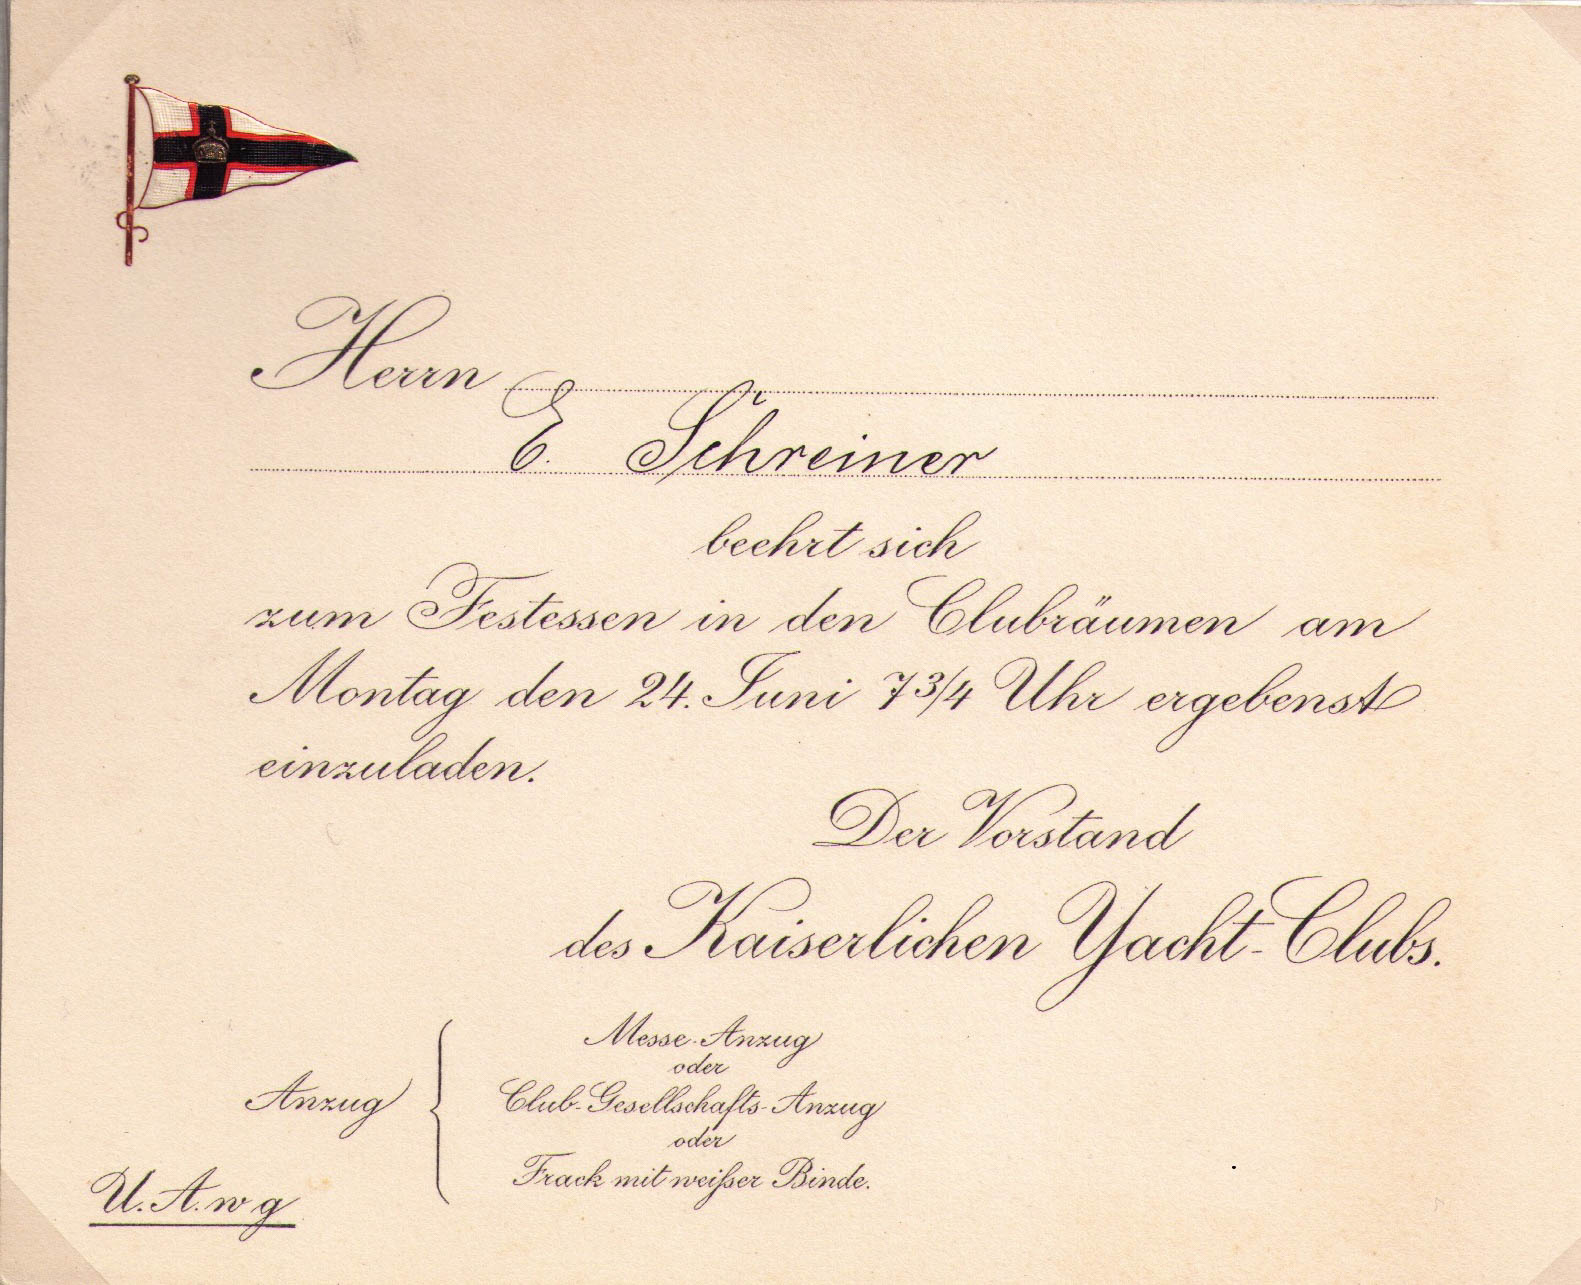 Herrn
E. Schreiner
beehrt sich
zum Festessen in den Clubräumen am
Montag den 24. Juni 7 3/4 Uhr ergebenst
einzuladen.
Der Vorstand
des Kaiserlichen Yacht-Clubs.
Anzug
Messe-Anzug
oder
Club-Gesellschafts-Anzug
oder
Frack mit weißer Binde.
U. A. w g